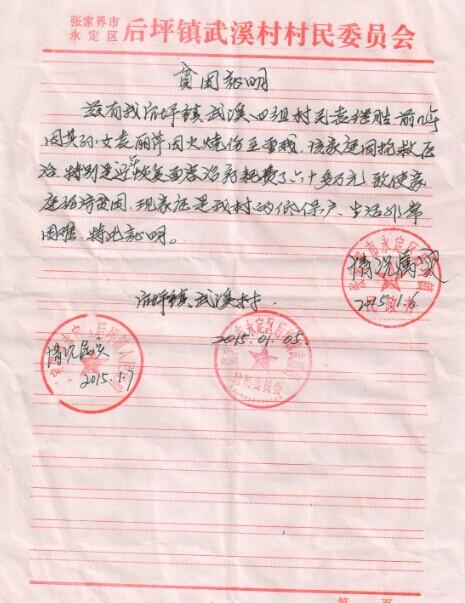 张家界市
永定区 后坪镇武溪村村民委员会
贫困证明
兹有我后坪镇武溪四组村民袁继胜前几年
因其幼女袁丽萍因火烧伤至重残,该家庭因抢救医
治,特别是近年恢复面容治疗耗费了六十多万元,致使家
庭经济贫困,现家庭是我村的低保户、生活非常
困难,特此证明。
情况属实
2015.1.6
后坪镇武溪村.
2015.01.05.
村民委员会
情况属实
2015.1.7
第 页